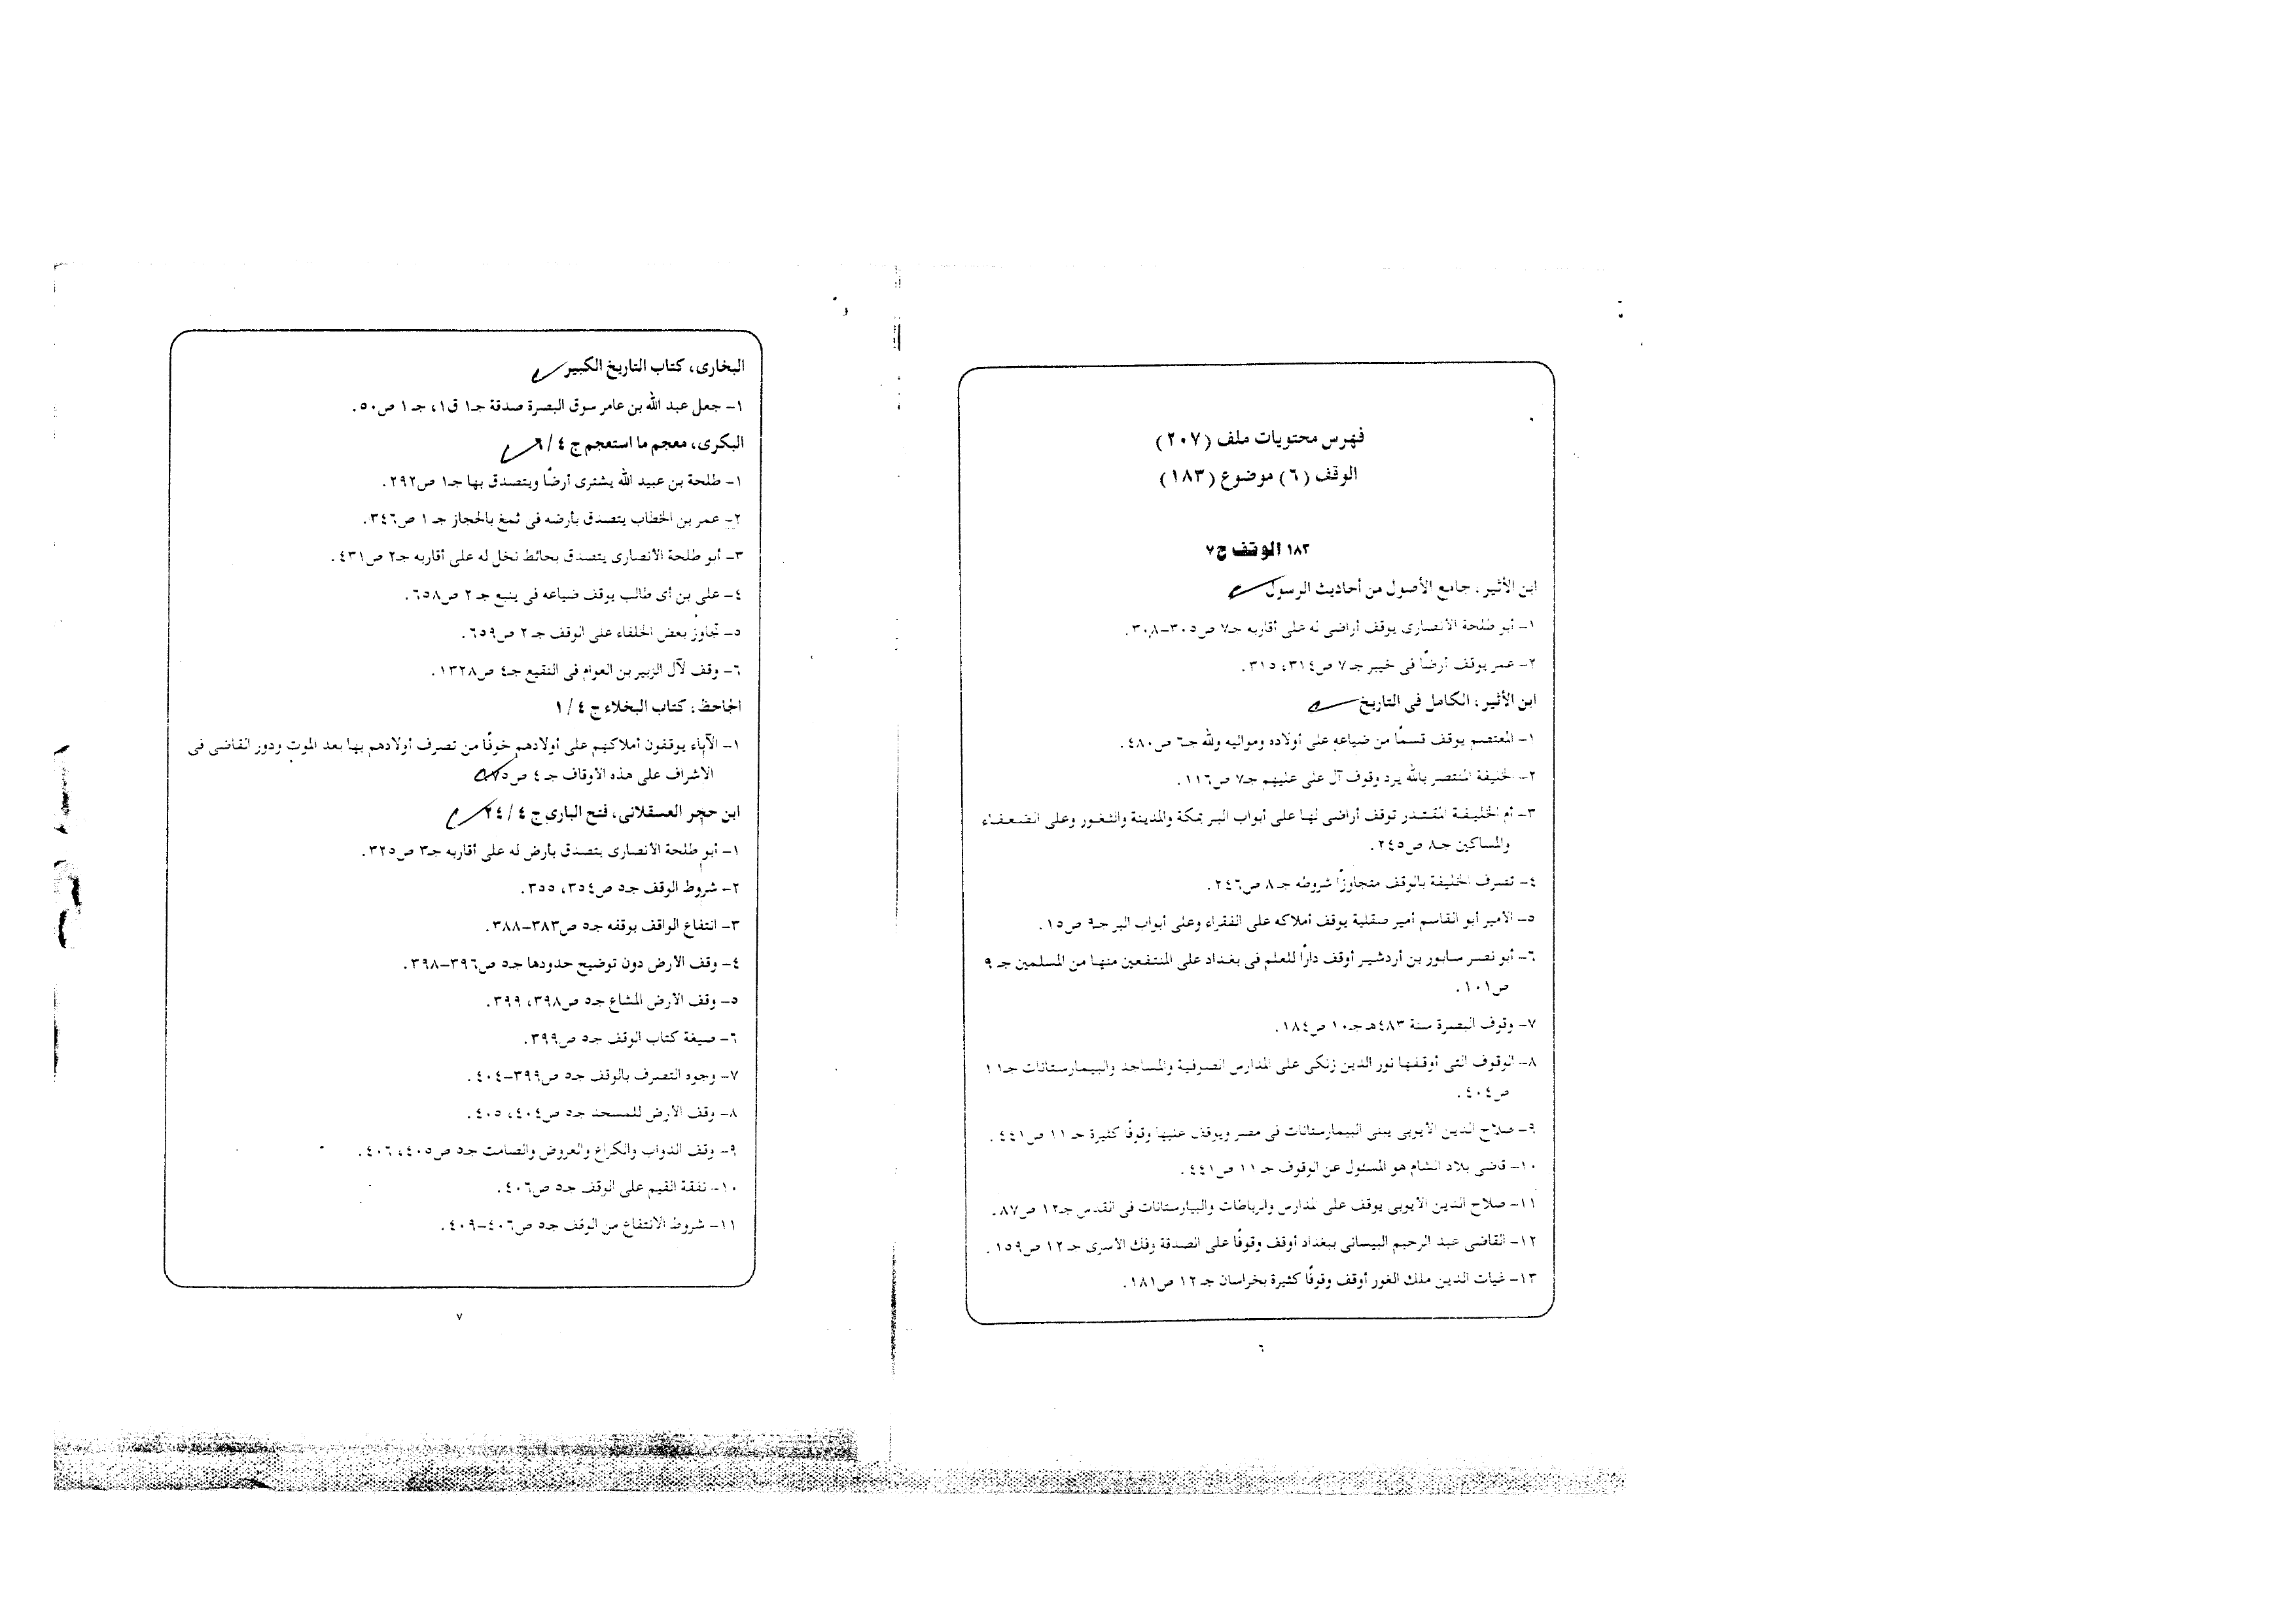 فهرس محتويات ملف (٢٠٧)
الوقف (٦) موضوع (١٨٣)
١٨٣ الوقف ج٧
ابن الأثير، جامع الأصول من أحاديث الرسول
١- أبو طلحة الأنصارى يوقف أراضى له على أقاربه جـ٧ ص٣٠٥-٣٠٨.
٢- عمر يوقف أرضًا فى خيبر جـ٧ ص٣١٤، ٣١٥.
ابن الأثير، الكامل فى التاريخ
١- المعتصم يوقف قسمًا من ضياعه على أولاده ومواليه ولله جـ٦ ص٤٨٠.
٢- الخليفة المنتصر بالله يرد وقوف آل على عليهم جـ٧ ص١١٦.
٣- أم الخليفة المقتدر توقف أراضى لها على أبواب البر بمكة والمدينة والثغور وعلى الضعفاء
والمساكين جـ٨ ص٢٤٥.
٤- تصرف الخليفة بالوقف متجاوزًا شروطه جـ٨ ص٢٤٦.
٥- الأمير أبو القاسم أمير صقلية يوقف أملاكه على الفقراء وعلى أبواب البر جـ٩ ص١٥.
٦- أبو نصر سابور بن أردشير أوقف دارًا للعلم فى بغداد على المنتفعين منها من المسلمين جـ٩
ص١٠١.
٧- وقوف البصرة سنة ٤٨٣هـ جـ١٠ ص١٨٤.
٨- الوقوف التى أوقفها نور الدين زنكى على المدارس الصوفية والمساجد والبيمارستانات جـ١١
ص٤٠٤.
٩- صلاح الدين الأيوبى يبنى البيمارستانات فى مصر ويوقف عليها وقوفًا كثيرة جـ١١ ص٤٤١.
١٠- قاضى بلاد الشام هو المسئول عن الوقوف جـ١١ ص٤٤١.
١١- صلاح الدين الأيوبى يوقف على المدارس والرباطات والبيارستانات فى القدس جـ١٢ ص٨٧.
١٢- القاضى عبد الرحيم البيسانى ببغداد أوقف وقوفًا على الصدقة وفك الأسرى جـ١٢ ص١٥٩.
١٣- غياث الدين ملك الغور أوقف وقوفًا كثيرة بخراسان جـ١٢ ص١٨١.
٦
البخارى، كتاب التاريخ الكبير
١- جعل عبد الله بن عامر سوق البصرة صدقة جـ١ ق١، جـ١ ص٥٠.
البكرى، معجم ما استعجم ج ٤ / ٦
١- طلحة بن عبيد الله يشترى أرضًا ويتصدق بها جـ١ ص٢٩٢.
٢- عمر بن الخطاب يتصدق بأرضه فى ثمغ بالحجاز جـ١ ص٣٤٦.
٣- أبو طلحة الأنصارى يتصدق بحائط نخل له على أقاربه جـ٢ ص٤٣١.
٤- على بن أى طالب يوقف ضياعه فى ينبع جـ٢ ص٦٥٨.
٥- تجاوز بعض الخلفاء على الوقف جـ٢ ص٦٥٩.
٦- وقف لآل الزبير بن العوام فى النقيع جـ٤ ص١٣٢٨.
الجاحظ، كتاب البخلاء ج ٤ / ١
١- الآباء يوقفون أملاكهم على أولادهم خوفًا من تصرف أولادهم بها بعد الموت ودور القاضى فى
الاشراف على هذه الأوقاف جـ٤
ابن حجر العسقلانى، فتح البارى ج ٤ / ٢٤
١- أبو طلحة الأنصارى يتصدق بأرض له على أقاربه جـ٣ ص٣٢٥.
٢- شروط الوقف جـ٥ ص٣٥٤، ٣٥٥.
٣- انتفاع الواقف بوقفه جـ٥ ص٣٨٣-٣٨٨.
٤- وقف الأرض دون توضيح حدودها جـ٥ ص٣٩٦-٣٩٨.
٥- وقف الأرض المشاع جـ٥ ص٣٩٨، ٣٩٩.
٦- صيغة كتاب الوقف جـ٥ ص٣٩٩.
٧- وجوه التصرف بالوقف جـ٥ ص٣٩٩-٤٠٤.
٨- وقف الأرض للمسجد جـ٥ ص٤٠٤، ٤٠٥.
٩- وقف الدواب والكراع والعروض والصامت جـ٥ ص٤٠٥، ٤٠٦.
١٠- نفقة القيم على الوقف جـ٥ ص٤٠٦.
١١- شروط الانتفاع من الوقف جـ٥ ص٤٠٦-٤٠٩.
٧